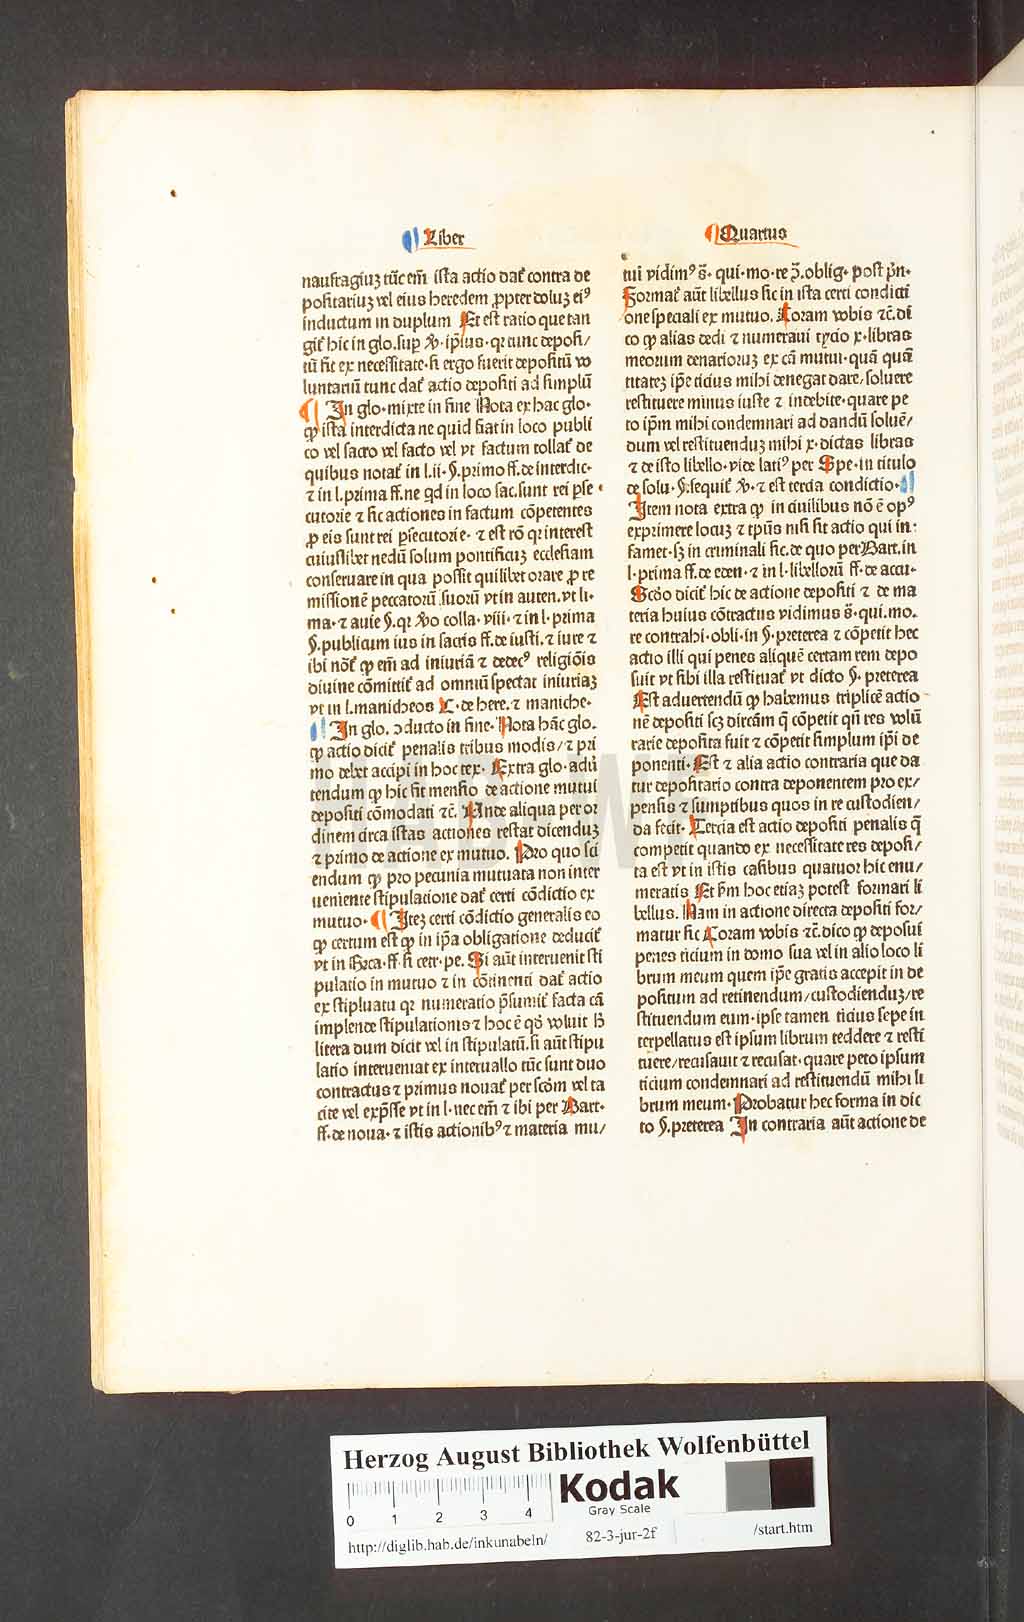 Liber
Quartus
naufragiuʒ tūc em̄ ista actio dat̄ contra de
positariuʒ vel eius heredem ꝓpter doluʒ ei⁹
inductum in duplum Et est ratio que tan
git̄ hic in glo. sup̄ ꝟ· ip̄ius· qꝛ tunc deposi/
tū fit ex necessitate· si ergo fuerit depositū vo
luntariū tunc dat̄ actio depositi ad simplū
In glo· mixte in fine Nota ex hac glo·
ꝙ ista interdicta ne quid fiat in loco publi
co vel sacro vel facto vel vt factum tollat̄ de
quibus notat̄ in l. ii· §. primo ff. de interdic·
⁊ in l. prima ff. ne qd in loco sac. sunt rei ꝑse
cutorie ⁊ sic actiones in factum cōpetentes
ꝓ eis sunt rei ꝑsecutorie· ⁊ est rō qꝛ interest
cuiuslibet nedū solum pontificuʒ ecclesiam
conseruare in qua possit quilibet orare ꝓ re
missionē peccatorū suorū vt in auten. vt li·
ma· ⁊ auie §. qꝛ ꝟo colla· viii· ⁊ in l· prima
§. publicum ius in sacris ff. de iusti. ⁊ iure ⁊
ibi nōt̄ ꝙ em̄ ad iniuriā ⁊ dedec⁹ religiōis
diuine cōmittit̄ ad omniū spectat iniuriaʒ
vt in l. manicheos C· de here. ⁊ maniche·
In glo. ↄducto in fine· Nota hāc glo.
ꝙ actio dicit̄ penalis tribus modis/ ⁊ pri
mo debet accipi in hoc tex· Extra glo· aduer
tendum ꝙ hic fit mensio de actione mutui
depositi cōmodati ⁊c̄. Ande aliqua per or
dinem circa istas actiones restat dicenduʒ
⁊ primo de actione ex mutuo. Pro quo sci
endum ꝙ pro pecunia mutuata non inter
ueniente stipulatione dat̄ certi cōdictio ex
mutuo· Iteʒ certi cōdictio generalis eo
ꝙ certum est ꝙ in ip̄a obligatione deducit̄
vt in ff. si cert· pe. Si aūt interuenit sti
pulatio in mutuo ⁊ in cōtinenti dat̄ actio
ex stipluatu qꝛ numeratio p̄sumit̄ facta cā
implende stipulationis ⁊ hoc ē qd̄ voluit h̄
litera dum dicit vel in stipulatū. si aūt stipu
latio interueniat ex interuallo tūc sunt duo
contractus ⁊ primus nouat̄ per scd̄m vel ta
cite vel exp̄sse vt in l· nec em̄ ⁊ ibi per Bart·
ff· de noua· ⁊ istis actionib⁹ ⁊ materia mu/
tui vidim⁹ s̄· qui· mo· re ꝯ. oblig· post pn̄·
Format̄ aūt libellus sic in ista certi condicti
one speciali ex mutuo. Coram vobis ⁊c̄. di
co ꝙ alias dedi ⁊ numeraui tycio x· libras
meorum denarioruʒ ex cā mutui· quā quā
titateʒ ip̄e ticius mihi denegat dare/ soluere
restituere minus iuste ⁊ indebite· quare pe
to ip̄m mihi condemnari ad dandū soluē/
dum vel restituenduʒ mihi x· dictas libras
⁊ de isto libello· vide lati⁹ per Spe· in titulo
de solu· §. sequit̄ ꝟ· ⁊ est tercia condictio·
Item nota extra ꝙ in ciuilibus nō ē op⁹
exprimere locuʒ ⁊ tp̄us nisi sit actio qui in·
famet· sʒ in criminali sic. de quo per Bart. in
l· prima ff. de eden· ⁊ in l· libellorū ff· de accu·
Scd̄o dicit̄ hic de actione depositi ⁊ de ma
teria huius cōtractus vidimus s̄· qui. mo.
re contrahi· obli· in §. preterea ⁊ cōpetit hec
actio illi qui penes aliquē certam rem depo
suit vt sibi illa restituat̄ vt dicto §. preterea
Est aduertendū ꝙ habemus triplicē actio
nē depositi scʒ dircām q̄ cōpetit qn̄ res volū
tarie deposita fuit ⁊ cōpetit simplum ip̄i de
ponenti· Est ⁊ alia actio contraria que da
tur depositario contra deponentem pro ex/
pensis ⁊ sumptibus quos in re custodien/
da fecit· Tercia est actio depositi penalis q̄
competit quando ex necessitate res deposi/
ta est vt in istis casibus quatuor hic enu/
meratis Et p̄m hoc etiaʒ potest formari li
bellus. Nam in actione directa depositi for/
matur sic Coram vobis ⁊c̄. dico ꝙ deposui
penes ticium in domo sua vel in alio loco li
brum meum quem ip̄e gratis accepit in de
positum ad retinendum/ custodienduʒ/ re
stituendum eum· ipse tamen ticius sepe in
terpellatus est ipsum librum teddere ⁊ resti
tuere/ recusauit ⁊ recusat· quare peto ipsum
ticium condemnari ad restituendū mihi li
brum meum· Probatur hec forma in dic
to §. preterea In contraria aūt actione de
HAB WF
Herzog August Bibliothek Wolfenbüttel
0 1 2 3 4
Kodak
Gray Scale
http://diglib.hab.de/inkunabeln/ 82-3-jur-2f /start.htm